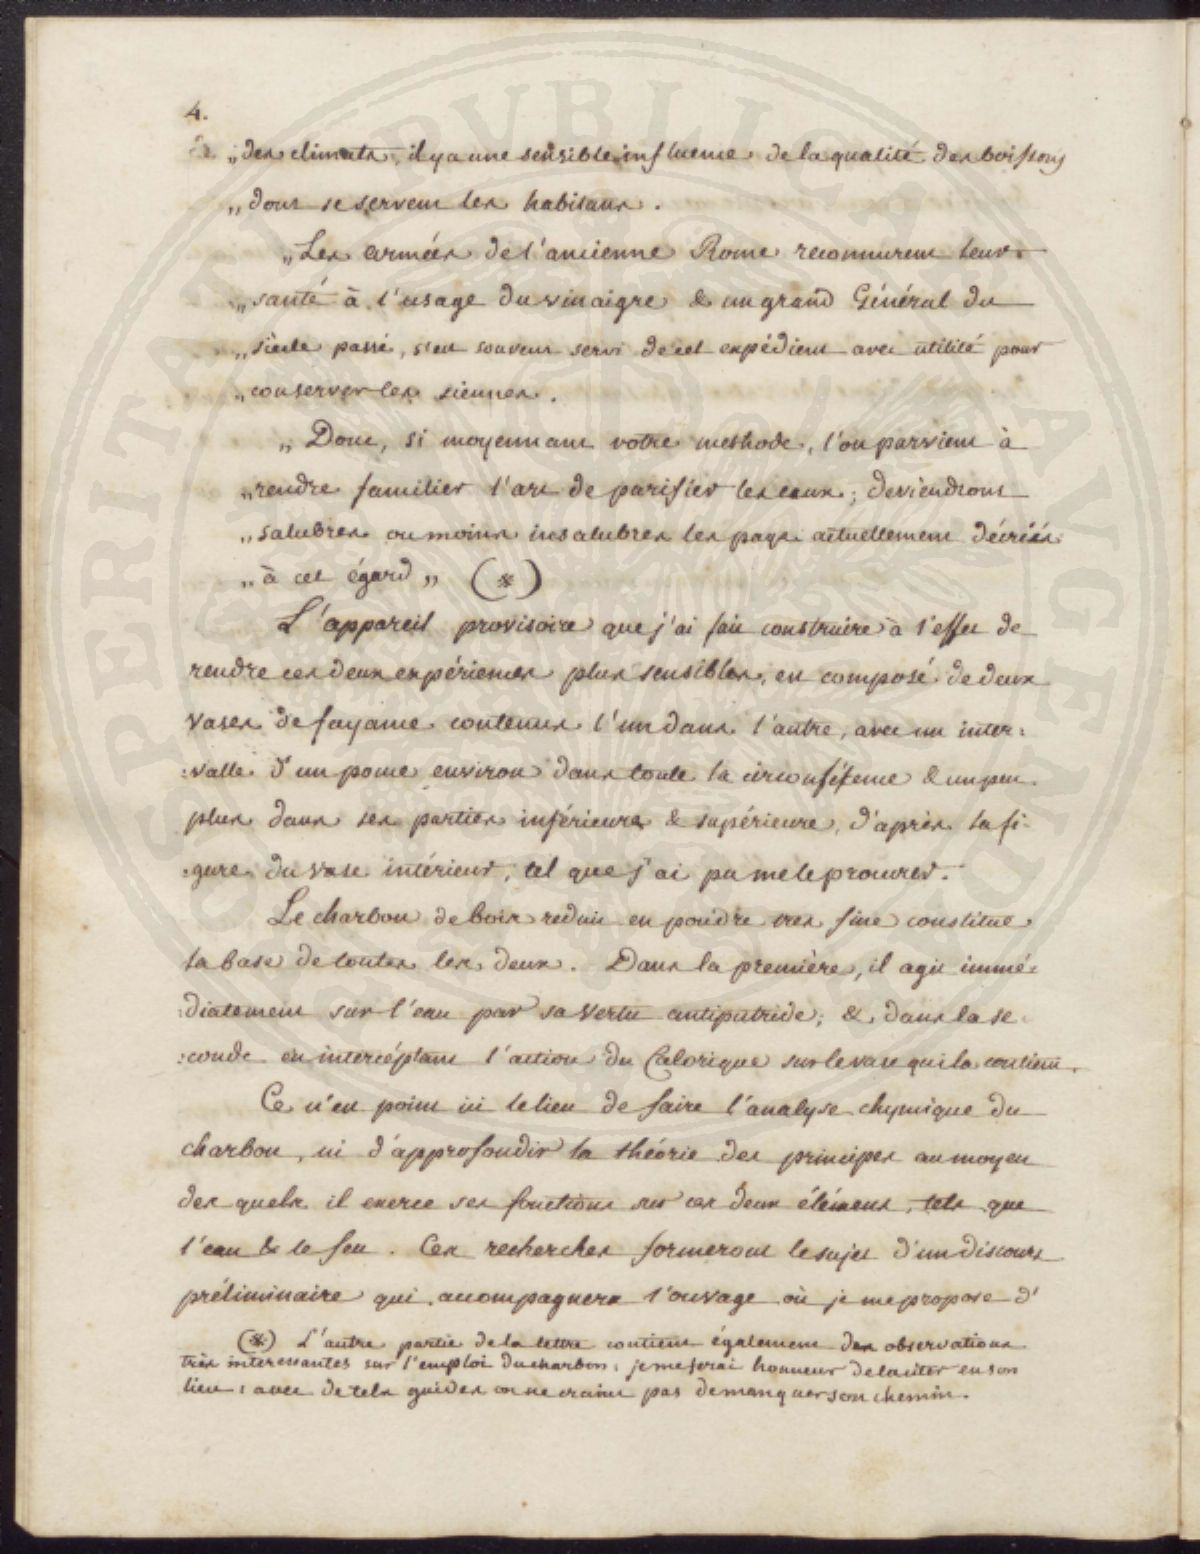 4.
„ des climats, il y a une sensible influence de la qualité des boissons
„ dont se servent les habitans.
„ Les armées de l'ancienne Rome reconnurent leur
„ santé à l'usage du vinaigre & un grand Général du
„ siècle passé, s'est souvent servi de cet expédient avec utilité pour
„ conserver les siennes.
„ Donc, si moyennant votre methode, l'on parvient à
„ rendre familier l'art de purifier les eaux; deviendront
„ salubres ou moins insalubres les pays actuellement décriés
„ à cet égard „ (*)
L'appareil provisoire que j'ai fait construire à l'effet de
rendre ces deux expériences plus sensibles, est composé de deux
vases de fayance contenus l'un dans l'autre, avec un inter:
:valle d'un pouce environ dans toute la circonférence & un peu
plus dans ses parties inférieure & supérieure, d'après la fi-
:gure du vase intérieur, tel que j'ai pu me le procurer.
Le charbon de bois reduit en poudre tres fine constitue
la base de toutes les deux. Dans la première, il agit immé:
:diatement sur l'eau par sa vertu antiputride; & dans la se:
:conde en intercéptant l'action du Calorique sur le vase qui la contient.
Ce n'est point ici le lieu de faire l'analyse chymique du
charbon, ni d'approfondir la théorie des principes au moyen
des quels il exerce ses fonctions sur ces deux élémens, tels que
l'eau & le feu. Ces recherches formeront le sujet d'un discours
préliminaire qui accompagnera l'ouvage où je me propose d'
(*) L'autre partie de la lettre contient également des observations
très interessantes sur l'emploi du charbon; je me ferai honneur de la citer en son
lieu: avec de tels guides on ne craint pas de manquer son chemin.
SPERITAT PVBLICA AVGENDO